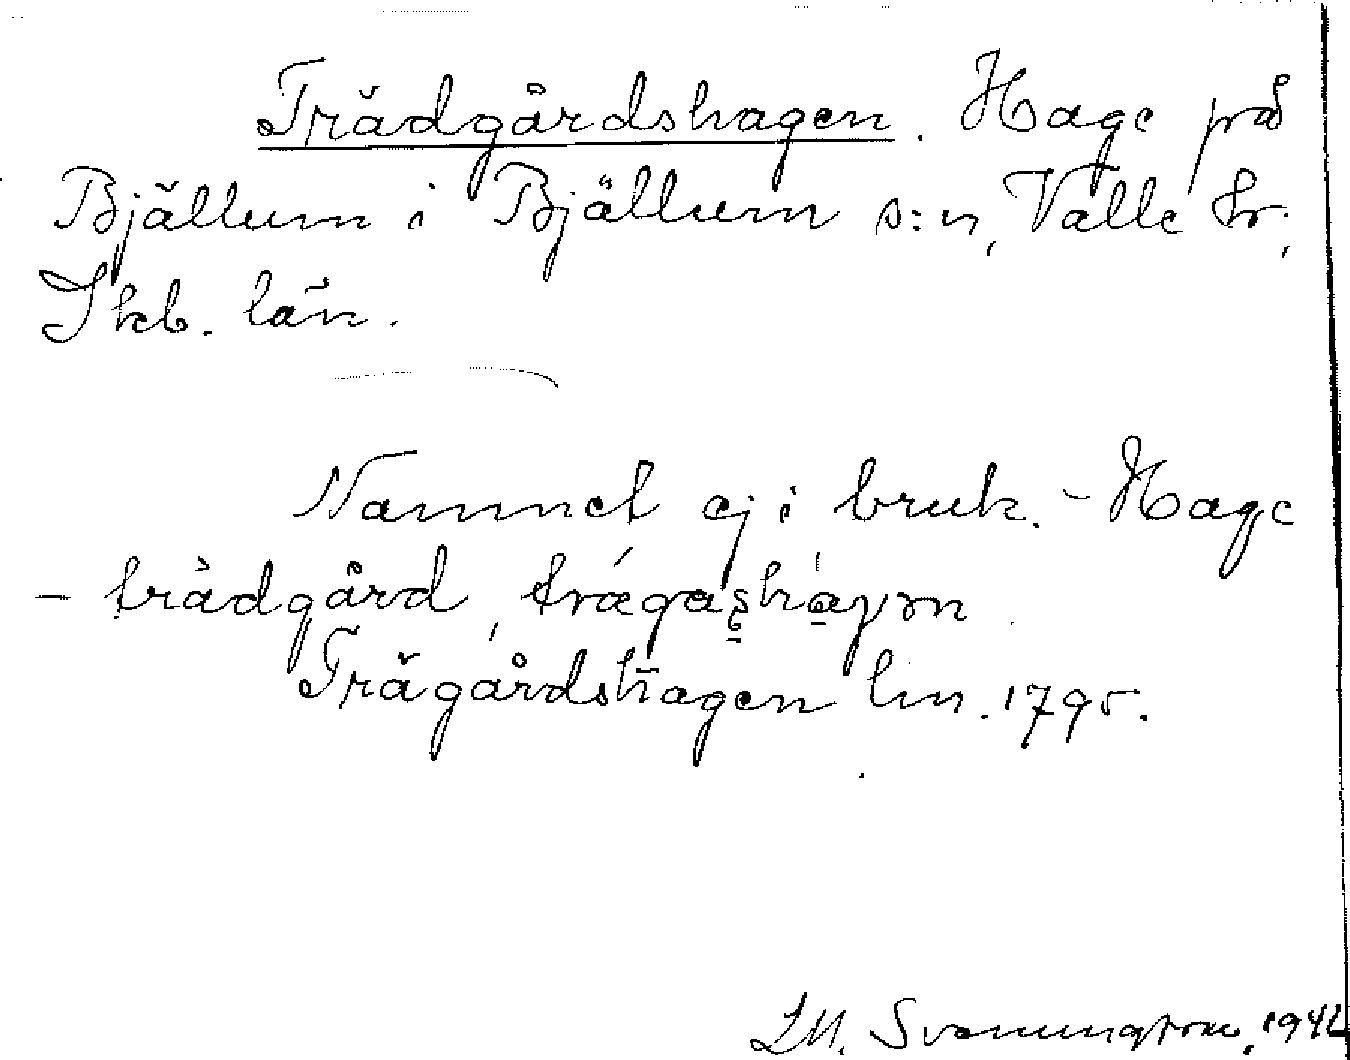 Trädgårdshagen. Hage på
Bjällum i Bjällum s:n, Valle hr,
Skb. län.
Namnet ej i bruk. - Hage
- trädgård, trǽgas̱há̱gən
Trägårdshagen lm. 1795.
LM. Svanungson, 1942